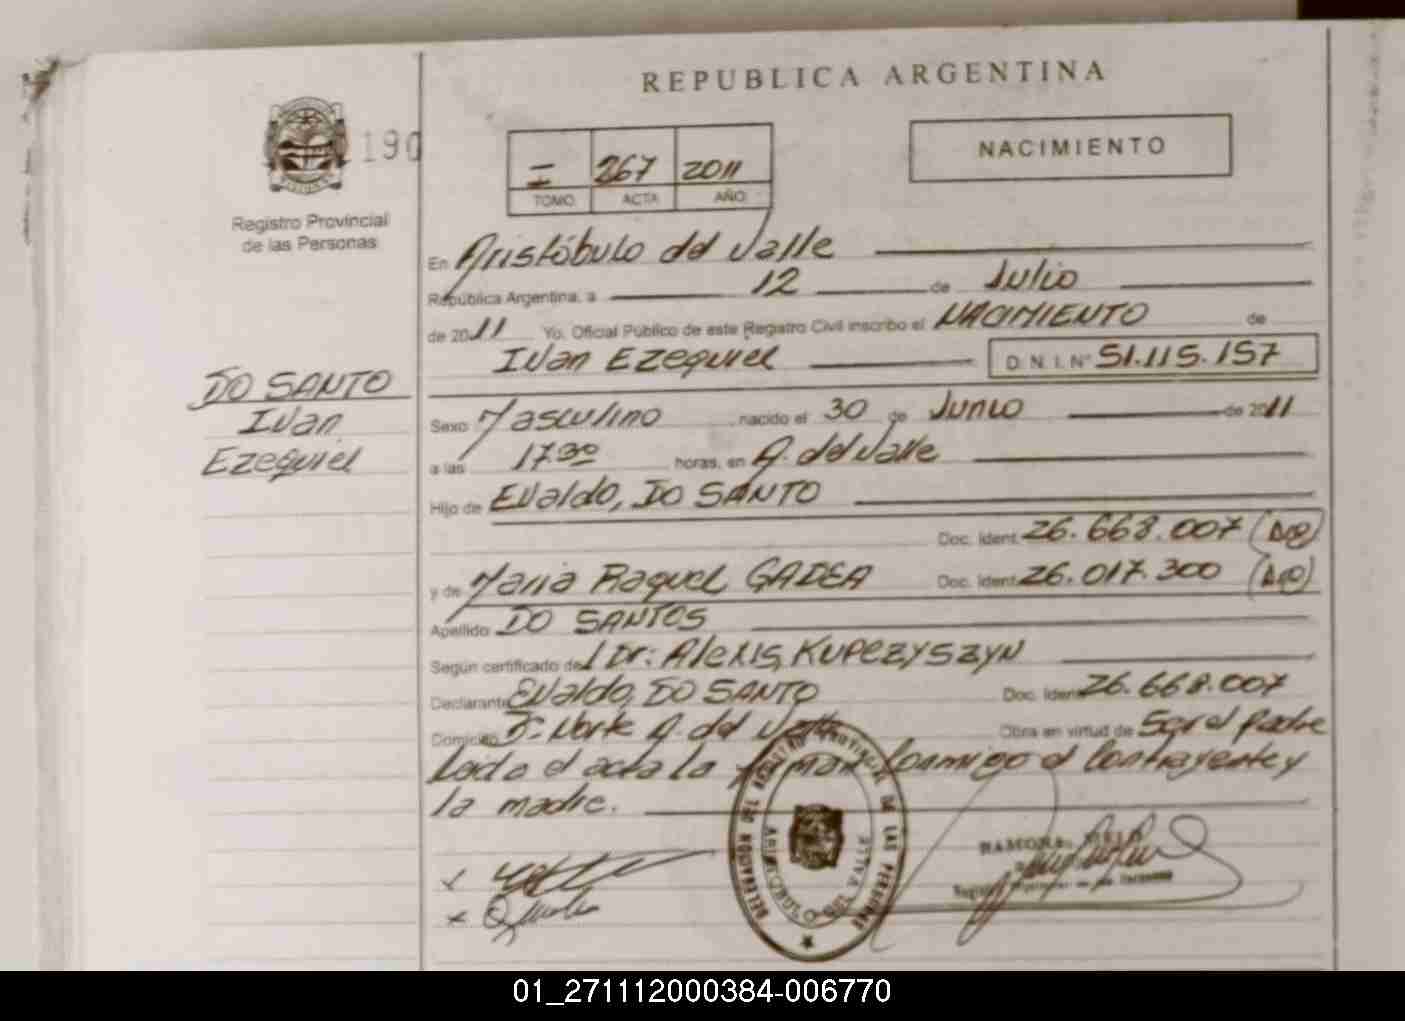 REPUBLICA ARGENTINA
190
I 267 2011
TOMO ACTA AÑO
NACIMIENTO
Registro Provincial
de las Personas
DO SANTO
Ivan
Ezequiel
En Aristóbulo del Valle
República Argentina, a 12 de Julio
de 2011 Yo, Oficial Público de este Registro Civil inscribo el NACIMIENTO de
Ivan Ezequiel D.N.I.N° 51.115.157
Sexo Masculino nacido el 30 de Junio de 2011
a las 17.30 horas, en A. del Valle
Hijo de Evaldo, DO SANTO
Doc. Ident. 26.668.007
y de Maria Raquel GADEA Doc. Ident. 26.017.300
Apellido DO SANTOS
Según certificado del Dr: Alexis, KUPCZYSZYN
Declarante Evaldo, DO SANTO Doc. Ident. 26.668.007
Domicilio Bº Norte A. del Valle Obra en virtud de Ser el padre
Leida el acta la firman conmigo el contrayente y
la madre.
DELEGACION DEL REGISTRO PROVINCIAL DE LAS PERSONAS
ARISTOBULO DEL VALLE
01_271112000384-006770